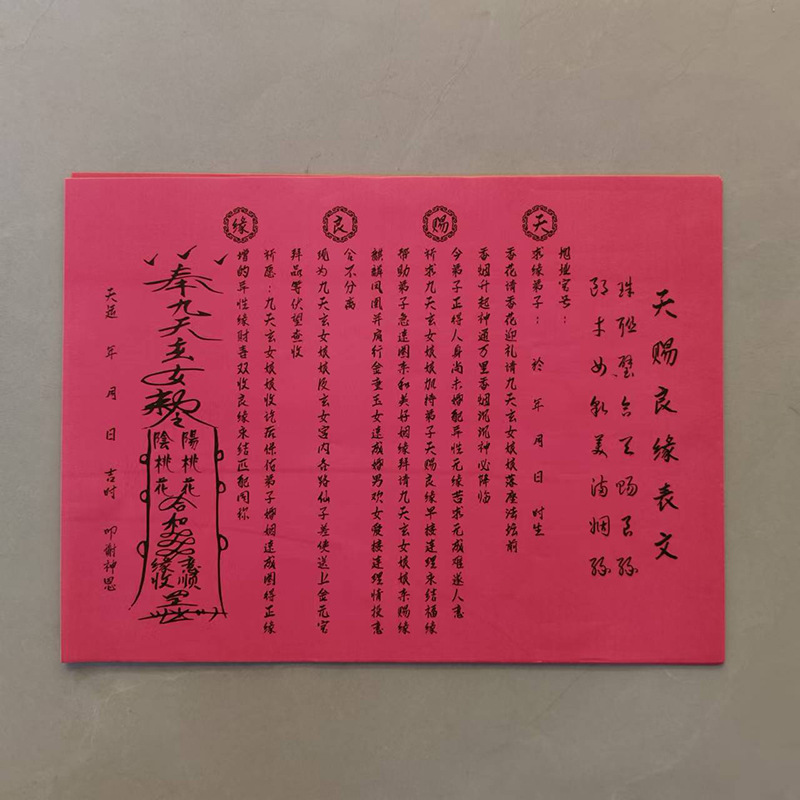 天赐良缘表文
珠联璧合天赐良缘
郎才女貌美满姻缘
天 赐 良 缘
地址宫号：
求缘弟子： 於 年 月 日 时生
香花请香花迎礼请九天玄女娘娘落座法坛前
香烟升起神通万里香烟沉沉神必降临
今弟子正得人身尚未婚配异性无缘苦求无成难遂人意
祈求九天玄女娘娘加持弟子天赐良缘早接连理永结福缘
帮助弟子急速圆亲和美好姻缘拜请九天玄女娘娘亲赐缘
麒麟凤凰并肩行金童玉女速成婚男欢女爱接连理情投意
合不分离
现为九天玄女娘娘及玄女宫内各路仙子差使送上金元宝
拜品等伏望查收
祈愿：九天玄女娘娘收讫后保佑弟子婚姻速成圆得正缘
增的异性缘财喜双收良缘永结匹配同称
奉九天玄女敕令
陽桃花
陰桃花
合和
意顺
缘收
罡
天运 年 月 日 吉时 叩谢神恩